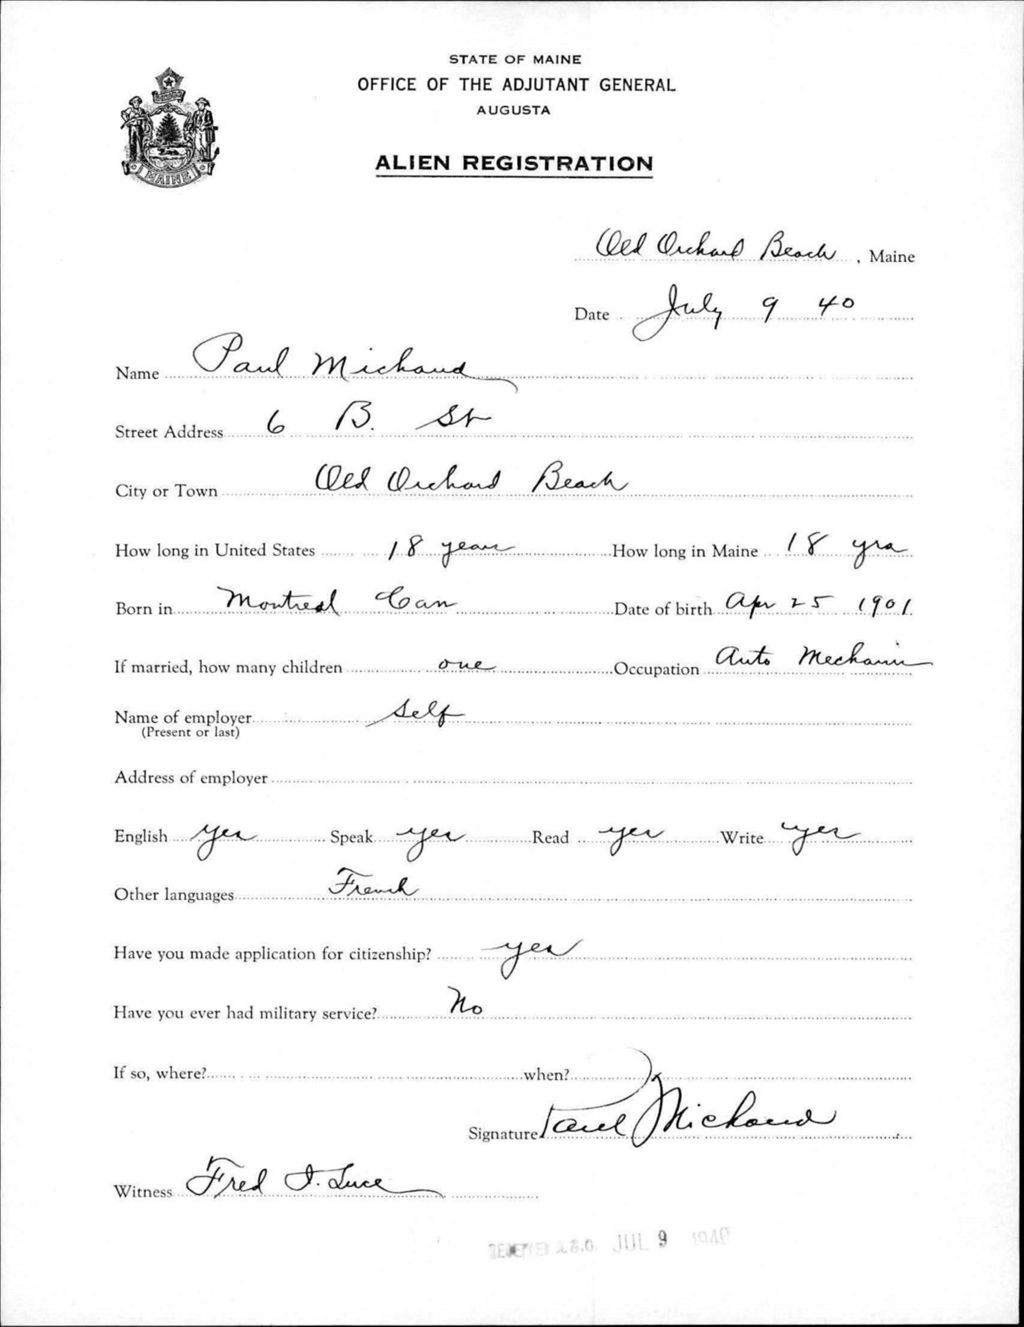 STATE OF MAINE
OFFICE OF THE ADJUTANT GENERAL
AUGUSTA
ALIEN REGISTRATION
MAINE
Old Orchard Beach, Maine
Date July 9 40
Name Paul Michaud
Street Address 6 B. St
City or Town Old Orchard Beach
How long in United States 18 years How long in Maine 18 yrs
Born in Montreal Can Date of birth Apr 25 1901
If married, how many children one Occupation Auto Mechanic
Name of employer Self
(Present or last)
Address of employer
English yes Speak yes Read yes Write yes
Other languages French
Have you made application for citizenship? yes
Have you ever had military service? No
If so, where? when?
Signature Paul Michaud
Witness Fred I. Luce
A.G.O. JUL 9 1940